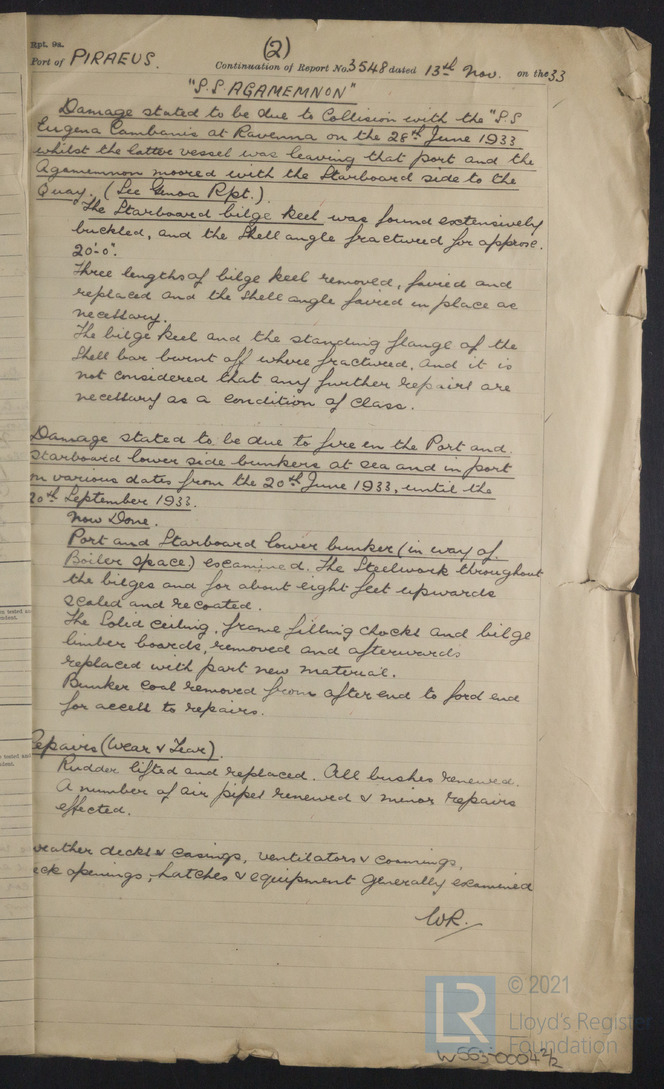 Rpt. 9a.
(2)
Port of PIRAEUS. Continuation of Report No. 3548 dated 13th Nov. on the 33
"S.S AGAMEMNON"
Damage stated to be due to Collision with the "S.S
Eugena Cambanis at Ravenna on the 28th June 1933
whilst the latter vessel was leaving that port and the
Agamemnon moored with the Starboard side to the
Quay. (See Genoa Rpt.)
The Starboard bilge keel was found extensively
buckled, and the Shell angle fractured for approx.
20'-0".
Three lengths of bilge keel removed, faired and
replaced and the shell angle faired in place as
necessary.
The bilge keel and the standing flange of the
Shell bar burnt off where fractured, and it is
not considered that any further repairs are
necessary as a condition of Class.
Damage stated to be due to fire in the Port and
Starboard lower side bunkers at sea and in port
on various dates from the 20th June 1933, until the
20th September 1933.
Now Done.
Port and Starboard lower bunker (in way of
Boiler space) examined. The Steelwork throughout
the bilges and for about eight feet upwards
scaled and recoated.
The Solid ceiling, frame filling chocks and bilge
limber boards, removed and afterwards
replaced with part new material.
Bunker coal removed from after end to ford end
for access to repairs.
Repairs (Wear & Tear).
Rudder lifted and replaced. All bushes renewed.
A number of air pipes renewed & minor repairs
effected.
weather decks & casings, ventilators & coamings,
deck openings, hatches & equipment generally examined
WR.
© 2021
LR
Lloyd's Register
Foundation
W563-0004 2/2